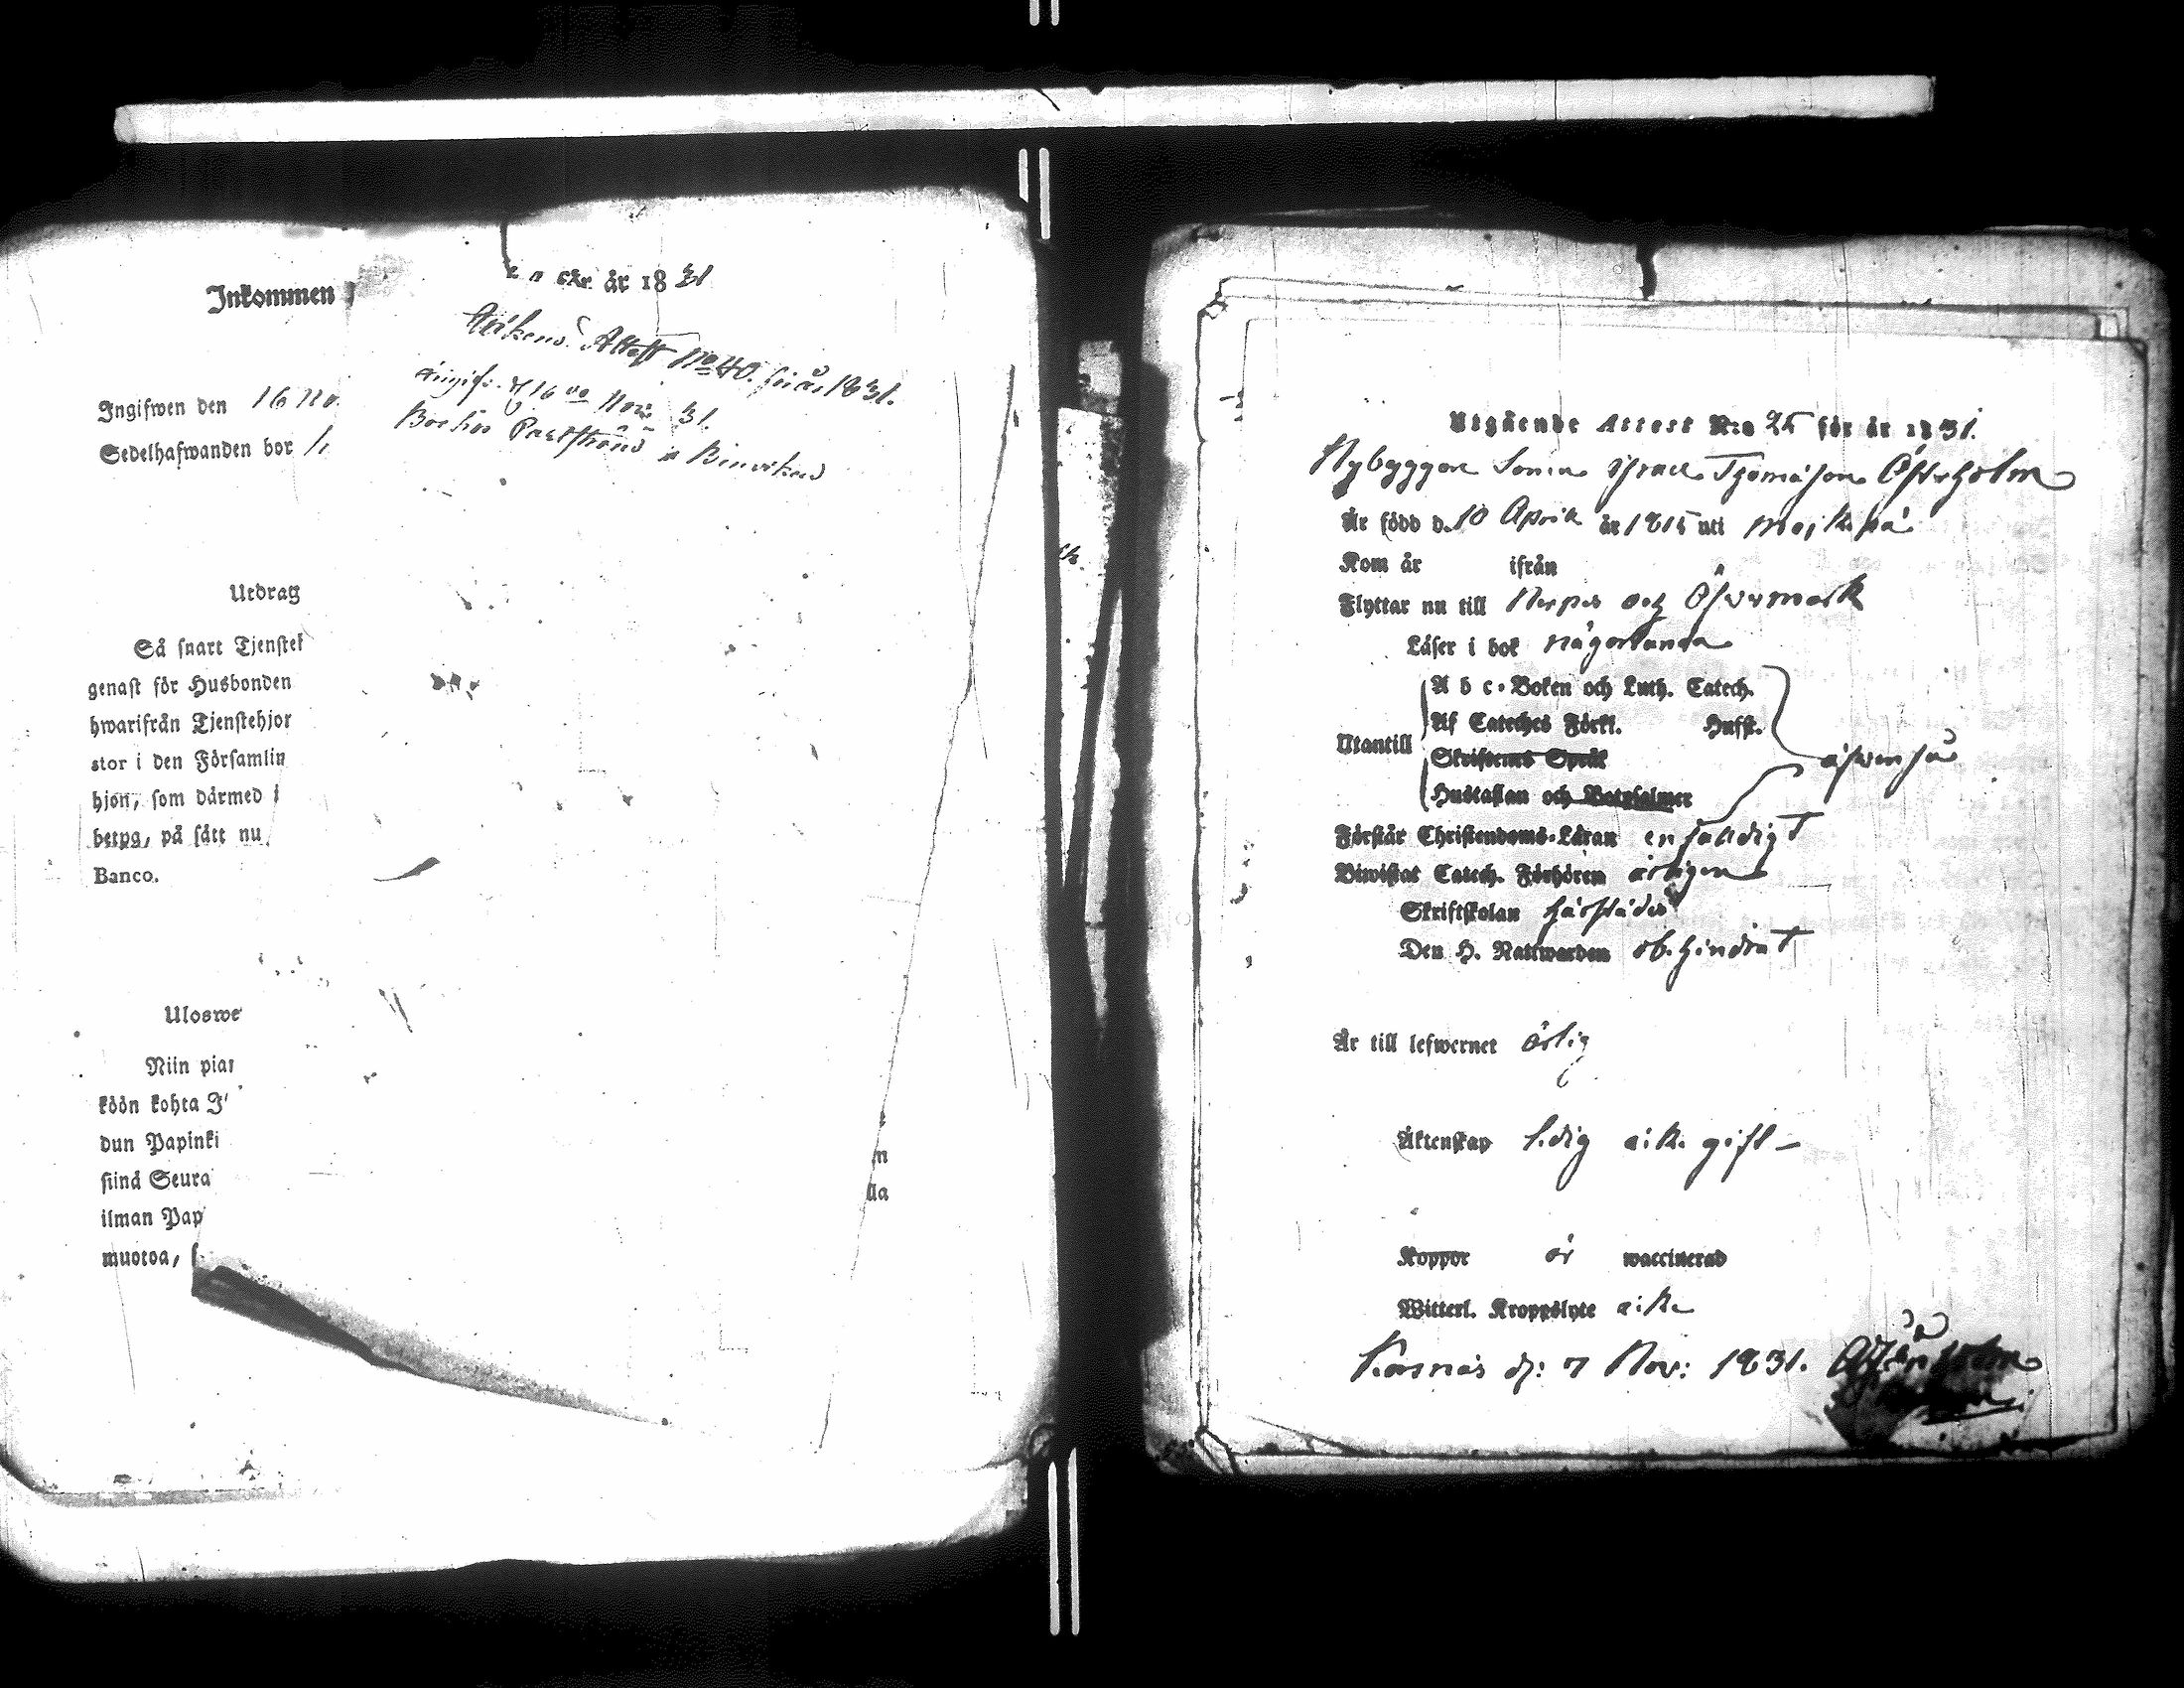 Inkommen
för år 1831
Attest No 40. för år 1831.
Ingifwen den 16 No.
ingif. d 16 Nov. 31.
Sedelhafwanden bor
Bor hos
Utdrag
Så snart Tjenstef
genast för Husbonden
hwarifrån Tjenstehjor
stor i den Församlin
hjon, som därmed i
betyg, på sätt nu
Banco.
Uloswe
Niin piar
köön kohta
dun Papinki
siinä Seura
n
ilman Pap
lla
muotoa,
Utgående Attest N:o 25 för år 1831.
Nybyggare Sonen Israel Thomasson Österholm
Är född d. 10 April år 1815 uti
Kom år ifrån
Flyttar nu till Nerpes och Öfvermark
Läser i bok någorlunda
A b c-Boken och Luth. Catech.
Af Cateches Förkl. Husst.
Utantill
Skriftenes Språk
äfwenså
Hustaflan och Botpsalmer
Förstår Christendoms-Läran enfalldigt
Biwistat Catech. Förhören årligen
Skriftskolan härstädes
Den H. Nattwarden obehindrat
Är till lefwernet ärlig
Äktenskap ledig icke gift
Koppor är waccinerad
Witterl. Kroppslyte icke
d: 7 Nov: 1831.